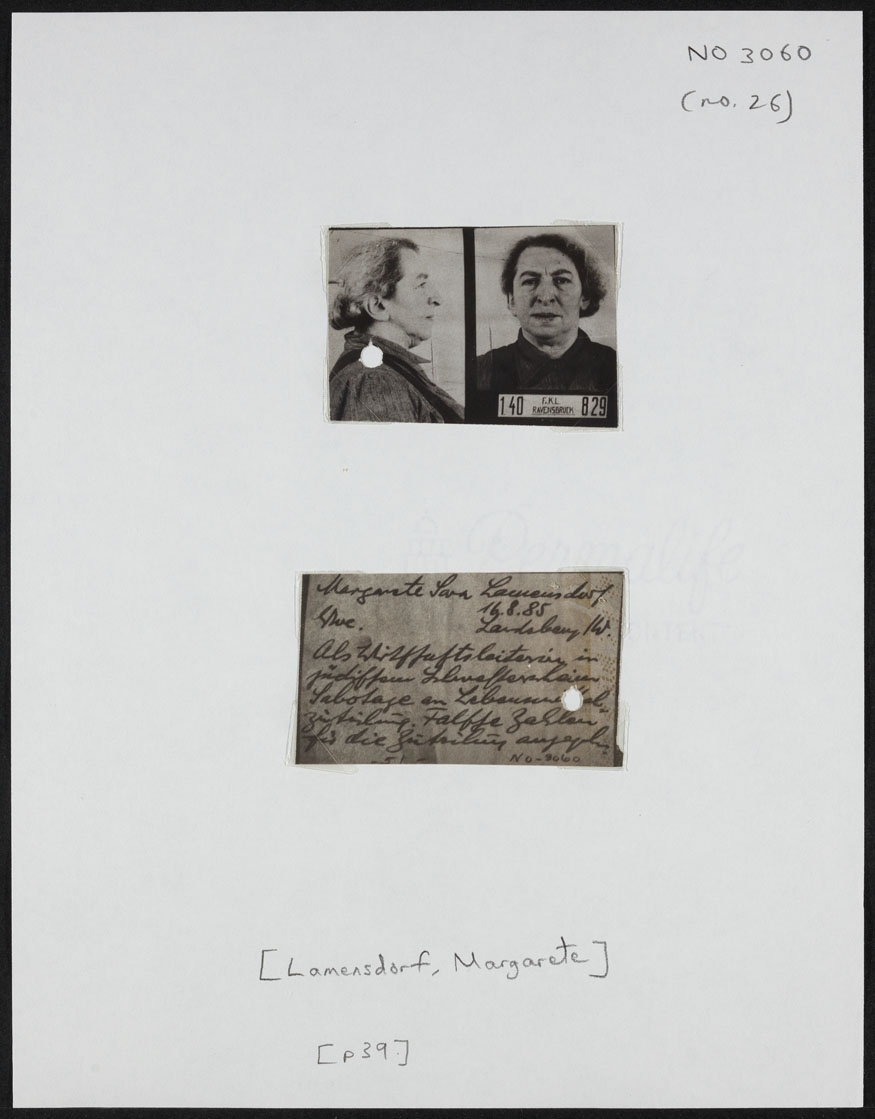 NO 3060
(no. 26)
140 F.K.L. RAVENSBRÜCK 829
Permalife
Margarete Sara Lamensdorf
16.8.85
Wwe. Landsberg /W.
Als Wirtschaftsleiterin in
jüdischem Schwesternheim
Sabotage an
zuteilung. Falsche Zahlen
für die Zuteilung
NO-3060
[Lamensdorf, Margarete]
[p39]